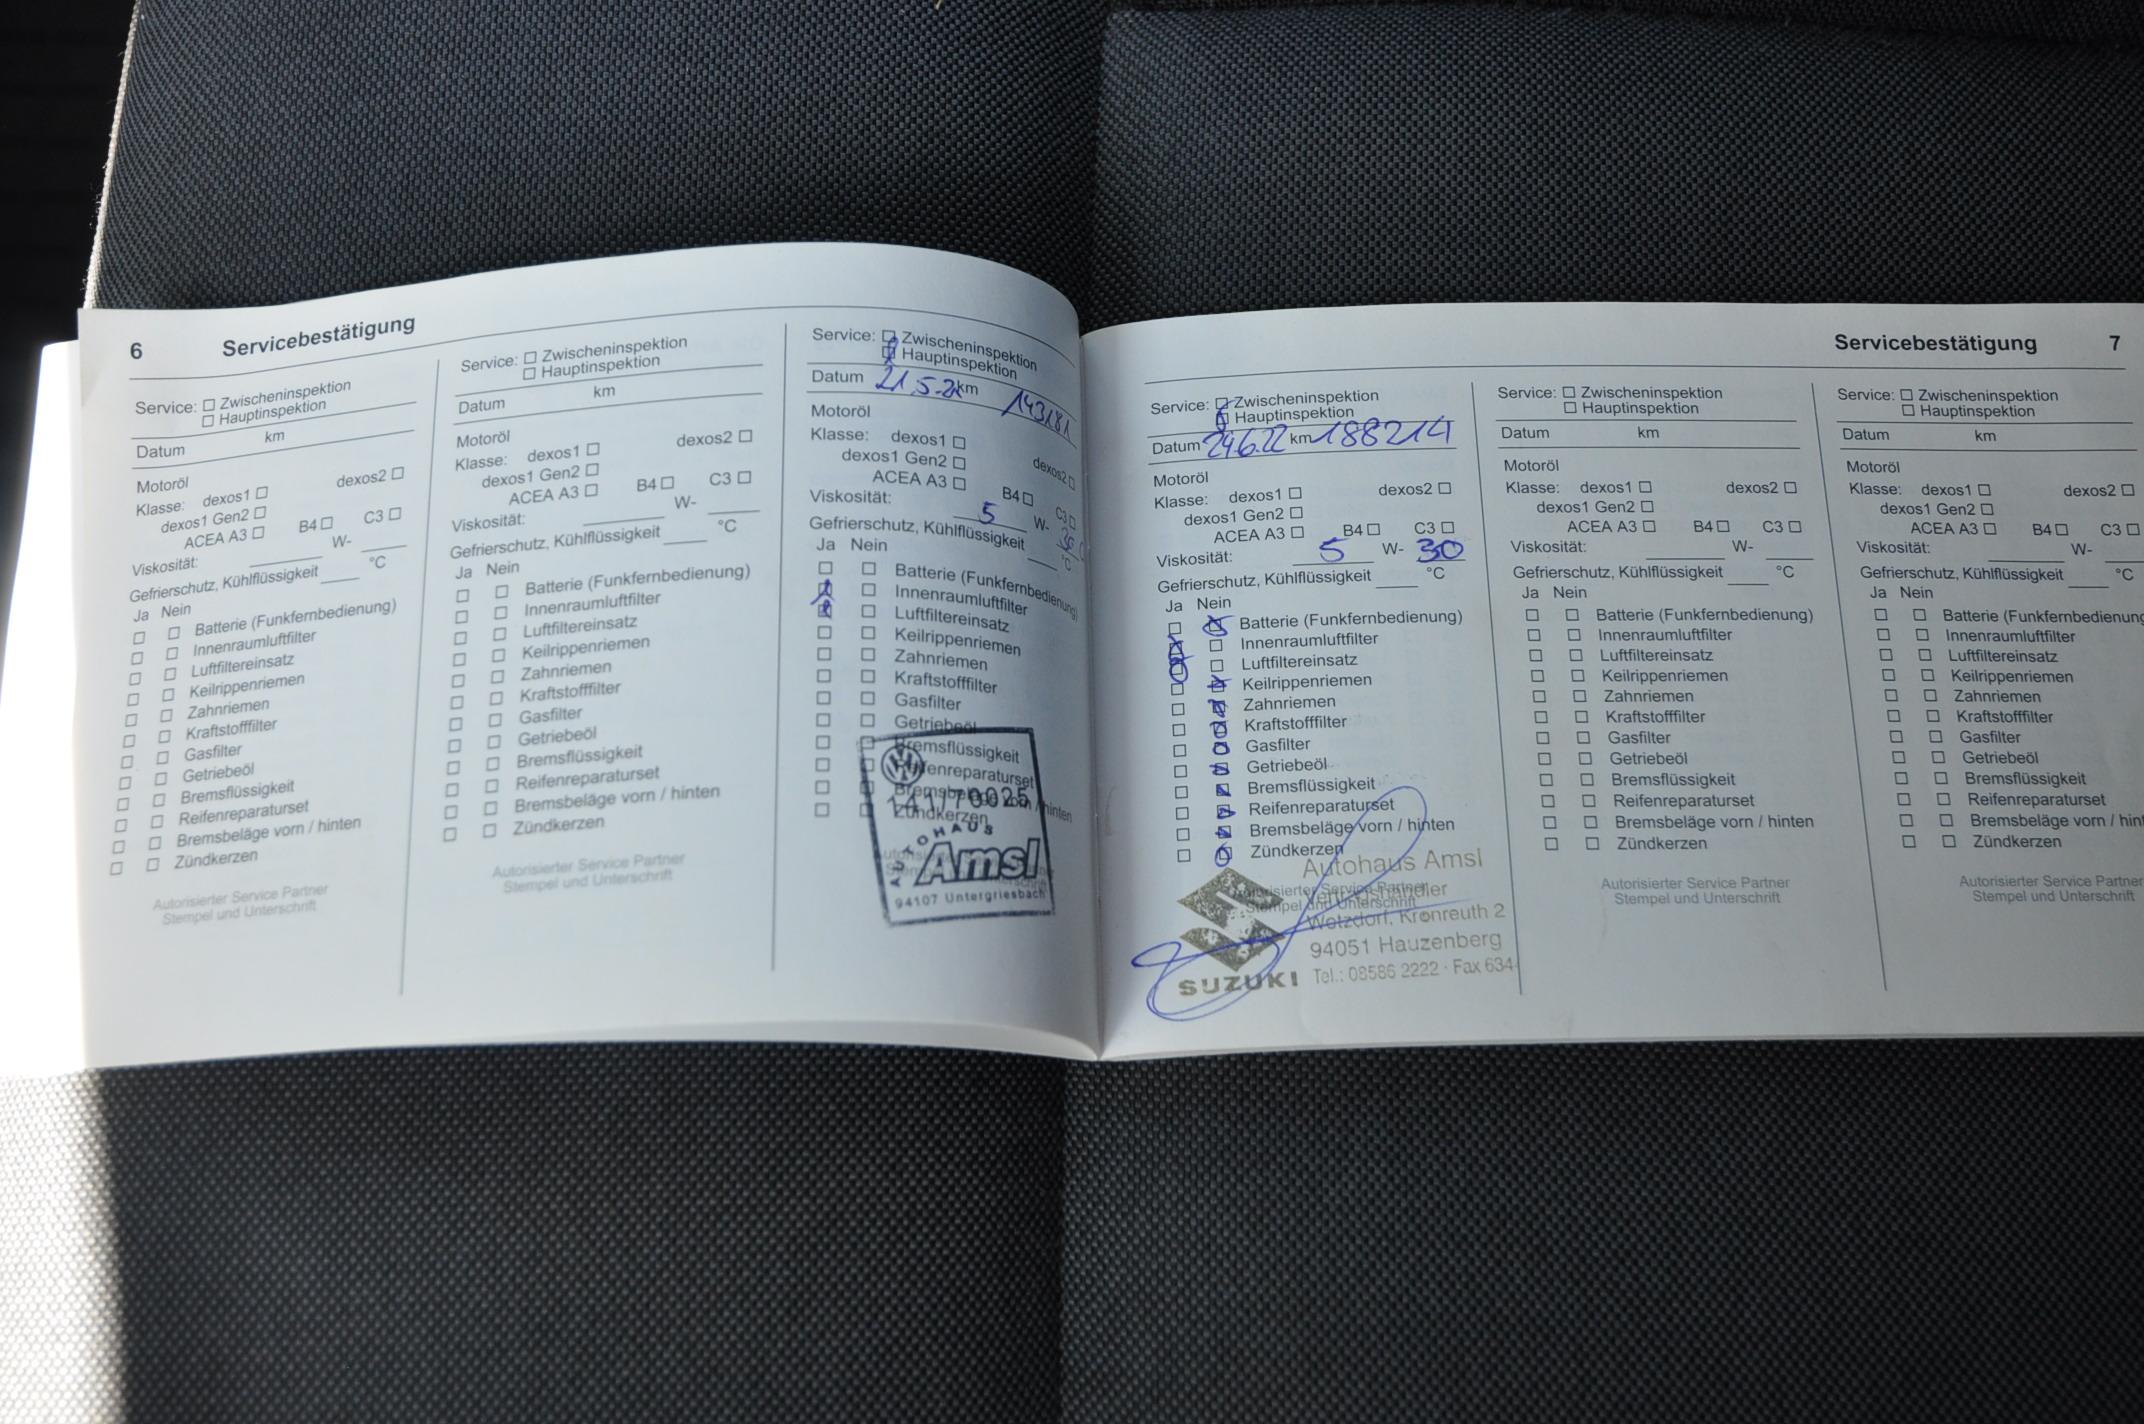 6 Servicebestätigung
Service: Zwischeninspektion
Hauptinspektion
Datum km
Motoröl
Klasse: dexos1 dexos2
dexos1 Gen2
ACEA A3 B4 C3
Viskosität: W-
Gefrierschutz, Kühlflüssigkeit °C
Ja Nein
Batterie (Funkfernbedienung)
Innenraumluftfilter
Luftfiltereinsatz
Keilrippenriemen
Zahnriemen
Kraftstofffilter
Gasfilter
Getriebeöl
Bremsflüssigkeit
Reifenreparaturset
Bremsbeläge vorn / hinten
Zündkerzen
Autorisierter Service Partner
Stempel und Unterschrift
Service: Zwischeninspektion
Hauptinspektion
Datum km
Motoröl
Klasse: dexos1 dexos2
dexos1 Gen2
ACEA A3 B4 C3
Viskosität: W-
Gefrierschutz, Kühlflüssigkeit °C
Ja Nein
Batterie (Funkfernbedienung)
Innenraumluftfilter
Luftfiltereinsatz
Keilrippenriemen
Zahnriemen
Kraftstofffilter
Gasfilter
Getriebeöl
Bremsflüssigkeit
Reifenreparaturset
Bremsbeläge vorn / hinten
Zündkerzen
Autorisierter Service Partner
Stempel und Unterschrift
Service: Zwischeninspektion
Hauptinspektion
Datum km 143181
Motoröl
Klasse: dexos1 dexos2
dexos1 Gen2
ACEA A3 B4 C3
Viskosität: 5 W- 30
Gefrierschutz, Kühlflüssigkeit °C
Ja Nein
Batterie (Funkfernbedienung)
Innenraumluftfilter
Luftfiltereinsatz
Keilrippenriemen
Zahnriemen
Kraftstofffilter
Gasfilter
Getriebeöl
Bremsflüssigkeit
Reifenreparaturset
Bremsbeläge vorn / hinten
Zündkerzen
141/70025
AUTOHAUS
Amsl
94107 Untergriesbach
Servicebestätigung 7
Service: Zwischeninspektion
Hauptinspektion
Datum 24.6.22 km 188214
Motoröl
Klasse: dexos1 dexos2
dexos1 Gen2
ACEA A3 B4 C3
Viskosität: 5 W- 30
Gefrierschutz, Kühlflüssigkeit °C
Ja Nein
Batterie (Funkfernbedienung)
Innenraumluftfilter
Luftfiltereinsatz
Keilrippenriemen
Zahnriemen
Kraftstofffilter
Gasfilter
Getriebeöl
Bremsflüssigkeit
Reifenreparaturset
Bremsbeläge vorn / hinten
Zündkerzen
Autorisierter Service Partner
Stempel und Unterschrift
Autohaus Amsl
Vertragshändler
Wotzdorf, Kronreuth 2
94051 Hauzenberg
SUZUKI Tel.: 08586 2222 · Fax 634
Service: Zwischeninspektion
Hauptinspektion
Datum km
Motoröl
Klasse: dexos1 dexos2
dexos1 Gen2
ACEA A3 B4 C3
Viskosität: W-
Gefrierschutz, Kühlflüssigkeit °C
Ja Nein
Batterie (Funkfernbedienung)
Innenraumluftfilter
Luftfiltereinsatz
Keilrippenriemen
Zahnriemen
Kraftstofffilter
Gasfilter
Getriebeöl
Bremsflüssigkeit
Reifenreparaturset
Bremsbeläge vorn / hinten
Zündkerzen
Autorisierter Service Partner
Stempel und Unterschrift
Service: Zwischeninspektion
Hauptinspektion
Datum km
Motoröl
Klasse: dexos1 dexos2
dexos1 Gen2
ACEA A3 B4 C3
Viskosität: W-
Gefrierschutz, Kühlflüssigkeit °C
Ja Nein
Batterie (Funkfernbedienung
Innenraumluftfilter
Luftfiltereinsatz
Keilrippenriemen
Zahnriemen
Kraftstofffilter
Gasfilter
Getriebeöl
Bremsflüssigkeit
Reifenreparaturset
Bremsbeläge vorn / hint
Zündkerzen
Autorisierter Service Partner
Stempel und Unterschrift